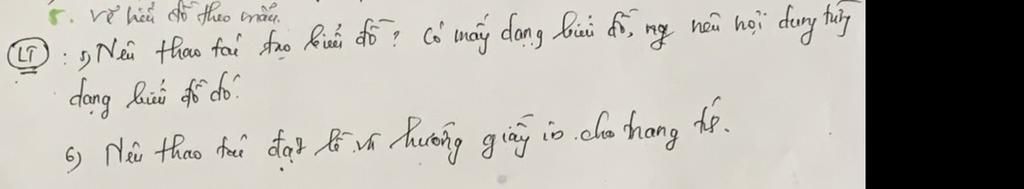 5. vẽ biểu đồ theo mẫu.
(LT) : 5) Nêu thao tác tạo biểu đồ? Có mấy dạng biểu đồ, nêu nội dung từng
dạng biểu đồ đó.
6) Nêu thao tác đặt lề và hướng giấy in cho trang